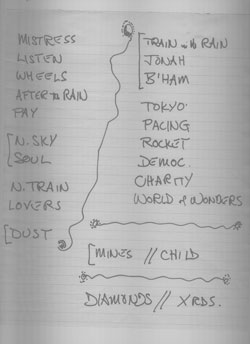 MISTRESS
LISTEN
WHEELS
AFTER the RAIN
FAY
N. SKY
SOUL
N. TRAIN
LOVERS
DUST
TRAIN in the RAIN
JONAH
B'HAM
TOKYO
PACING
ROCKET
DEMOC.
CHARITY
WORLD of WONDERS
MINES // CHILD
DIAMONDS // XRDS.